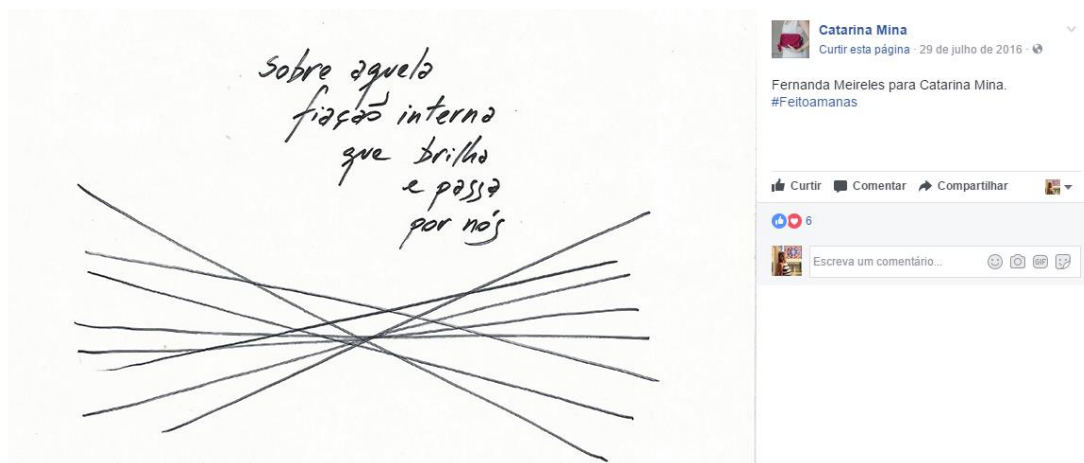 sobre aquela
fiação interna
que brilha
e passa
por nós
Catarina Mina
Curtir esta página · 29 de julho de 2016 ·
Fernanda Meireles para Catarina Mina.
#Feitoamanas
Curtir Comentar Compartilhar
6
Escreva um comentário...
GIF